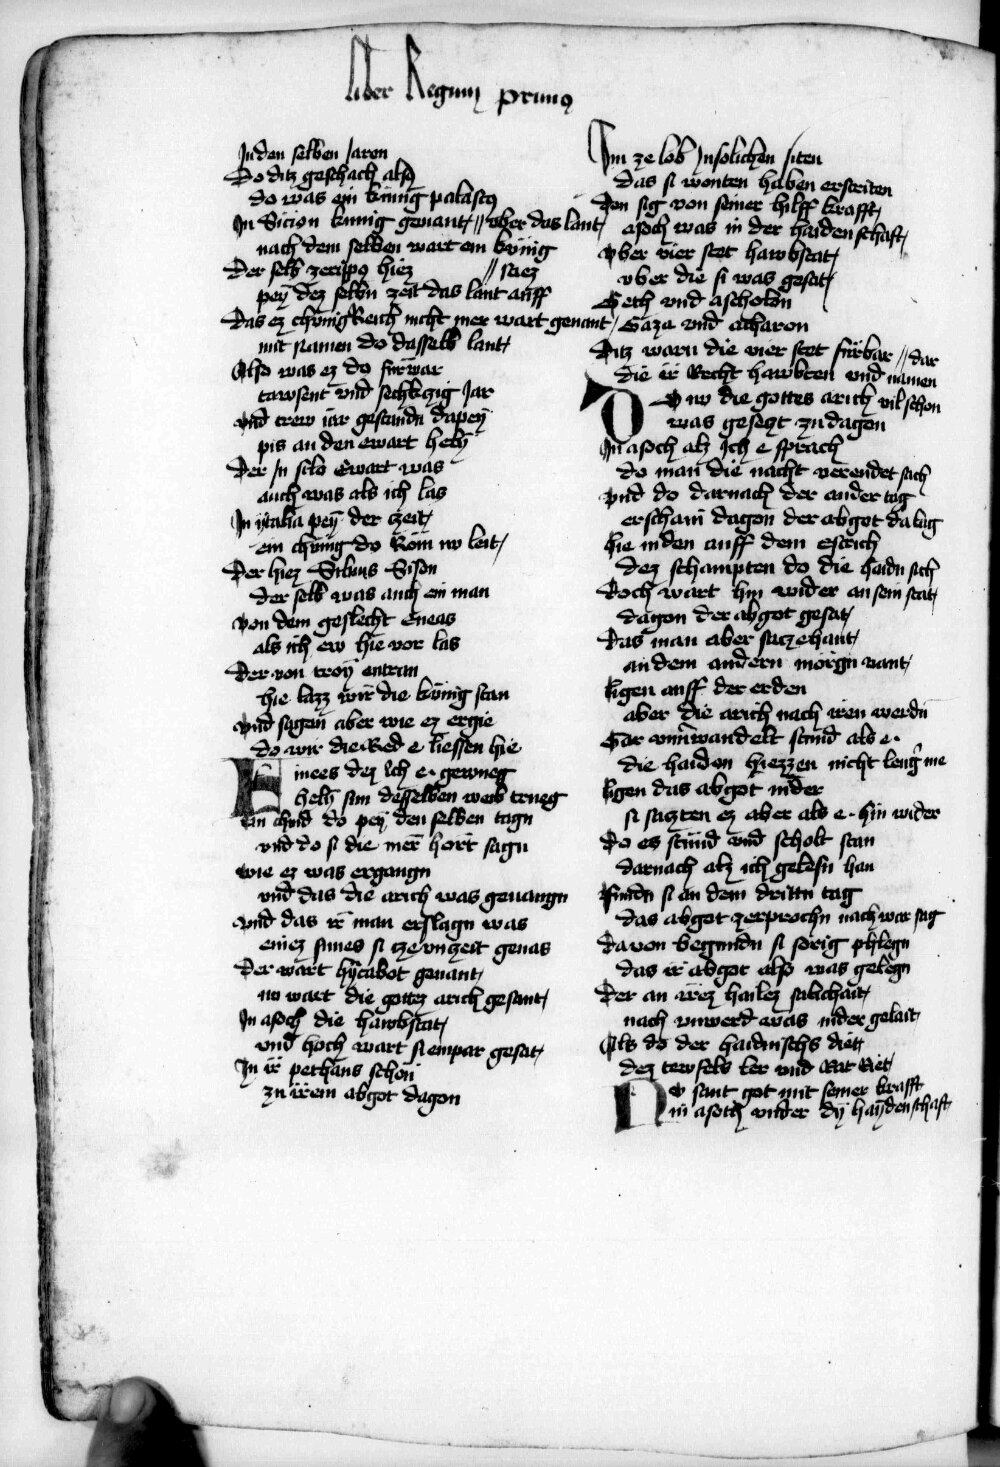 liber Regum primus
In den selben Jaren
Do ditz geschach also
do was ein künig palastus
In Sicion kunig genant // vber das lant
nach dem selben wart ein küniig
Der selb zeripo hiez // saez
peÿ dez selbn zeit das lant auff
Das ez chunig Reich nicht mer wart genant
mit Namen do dasselb lant
Also was ez do furwar
tawsent vnd sechkzig Jar
vnd trew iar gestandn dapeÿ
pis an den ewart helÿ
Der In silo Ewart was
auch was als ich las
In ÿtalia peÿ der czeit
ein chunig do Rom nv leit
Der hiez Siluius Sison
der selb was auch ein man
von dem geslecht Eneas
als ich ew hie vor las
Der von troÿ entran
hie lazz wir die kunig stan
vnd sagen aber wie ez ergie
do wir die Red e liessen hie
Finees dez ich e gewueg
helÿ sun desselben weib trueg
ain chind do peÿ den selben tagn
vnd do si die mer hort sagn
wie ez was ergangn
vnd das die arich was geuangn
vnd das ir man erslagn was
einez sunes si cze vnzeit genas
Der wart hÿcabot genant
nv wart die gottez arich gesant
In asoch die hawbstat
vnd hoch wart si empar gesat
In ir pethaus schon
zu irem abgot dagon
Im ze lob Insolichen siten
das si wonten haben erstriten
den sig von seiner hilff krafft
asoch was in der haidenschaft
vber vier stet hawbstat
vber die si was gesat
Geth vnd ascholon
Gaza vnd acharon
Ditz warn die vier stet fürbar // dar
die ir Recht hawbten vnd namen
Do nv die gottes arich vil schon
was gesetzt zu dagon
In asoch alz Ich e sprach
do man die nacht verendet sach
vnd do darnach der ander tag
erschain dagon der abgot da lag
hie niden auff dem estrich
dez schampten do die haidn sich
Doch wart him wider an sein stat
dagon der abgot gesat
Das man aber sa zehant
an dem andern morgn vant
ligen auff der erden
aber die arich nach iren werdn
Gar vnuerwandelt stund als e
die haiden hiezzen nicht leng me
ligen das abgot nider
si satzten ez aber als e hin wider
Do es stund vnd scholt stan
darnach alz ich gelesn han
Funden si an dem drittn tag
das abgot zerprochn nach war sag
Davon begundn si sorig phlegn
das ir abgot also was gelegn
Der an irez hailez salichait
nach vnwerd was nider gelait
Als do der haidnischs diet
dez tewfels ler vnd Rat Riet
Nv sant got mit seiner krafft
in asoth vnder dÿ haÿdenschaft